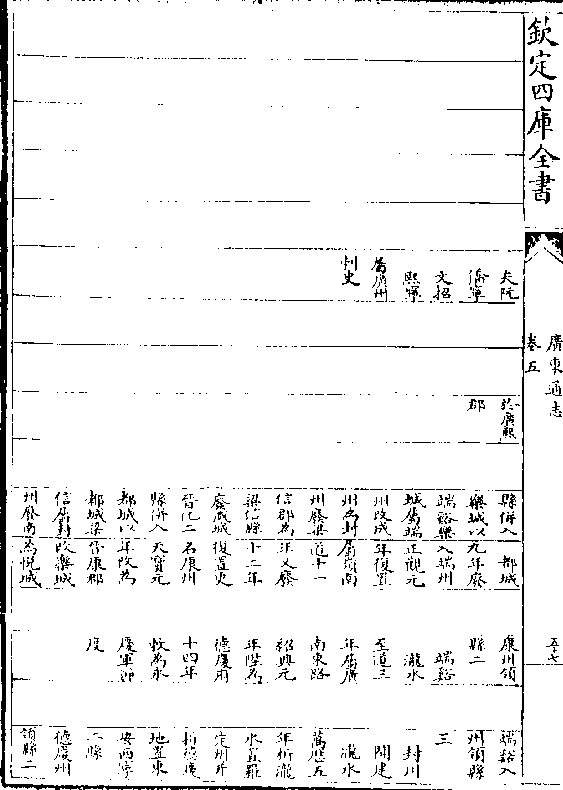 欽定四庫全書
廣東通志
卷五
五十七
夫阮
僑寧
文招
熙寧
屬廣州
刺史
於廣熙
郡
縣併入
樂城以
端谿樂
城屬端
州改成
州為封
州廢樂
信郡為
梁信縣
廢威城
晉化二
縣併入
都城以
都城梁
信屬封
州廢南
都城
元年廢
入端州
正觀元
年復置
屬嶺南
道十一
年又廢
十二年
復置更
名康州
天寶元
年改為
晉康郡
改樂城
為悅城
康州領
縣二
端谿
瀧水
至道三
年屬廣
南東路
紹興元
年陞為
德慶府
十四年
敕為永
慶軍節
度
端谿入
州領縣
三
封川
開建
瀧水
萬厯五
年析瀧
水置羅
定州并
析德慶
地置東
安西寧
二縣
德慶州
領縣二